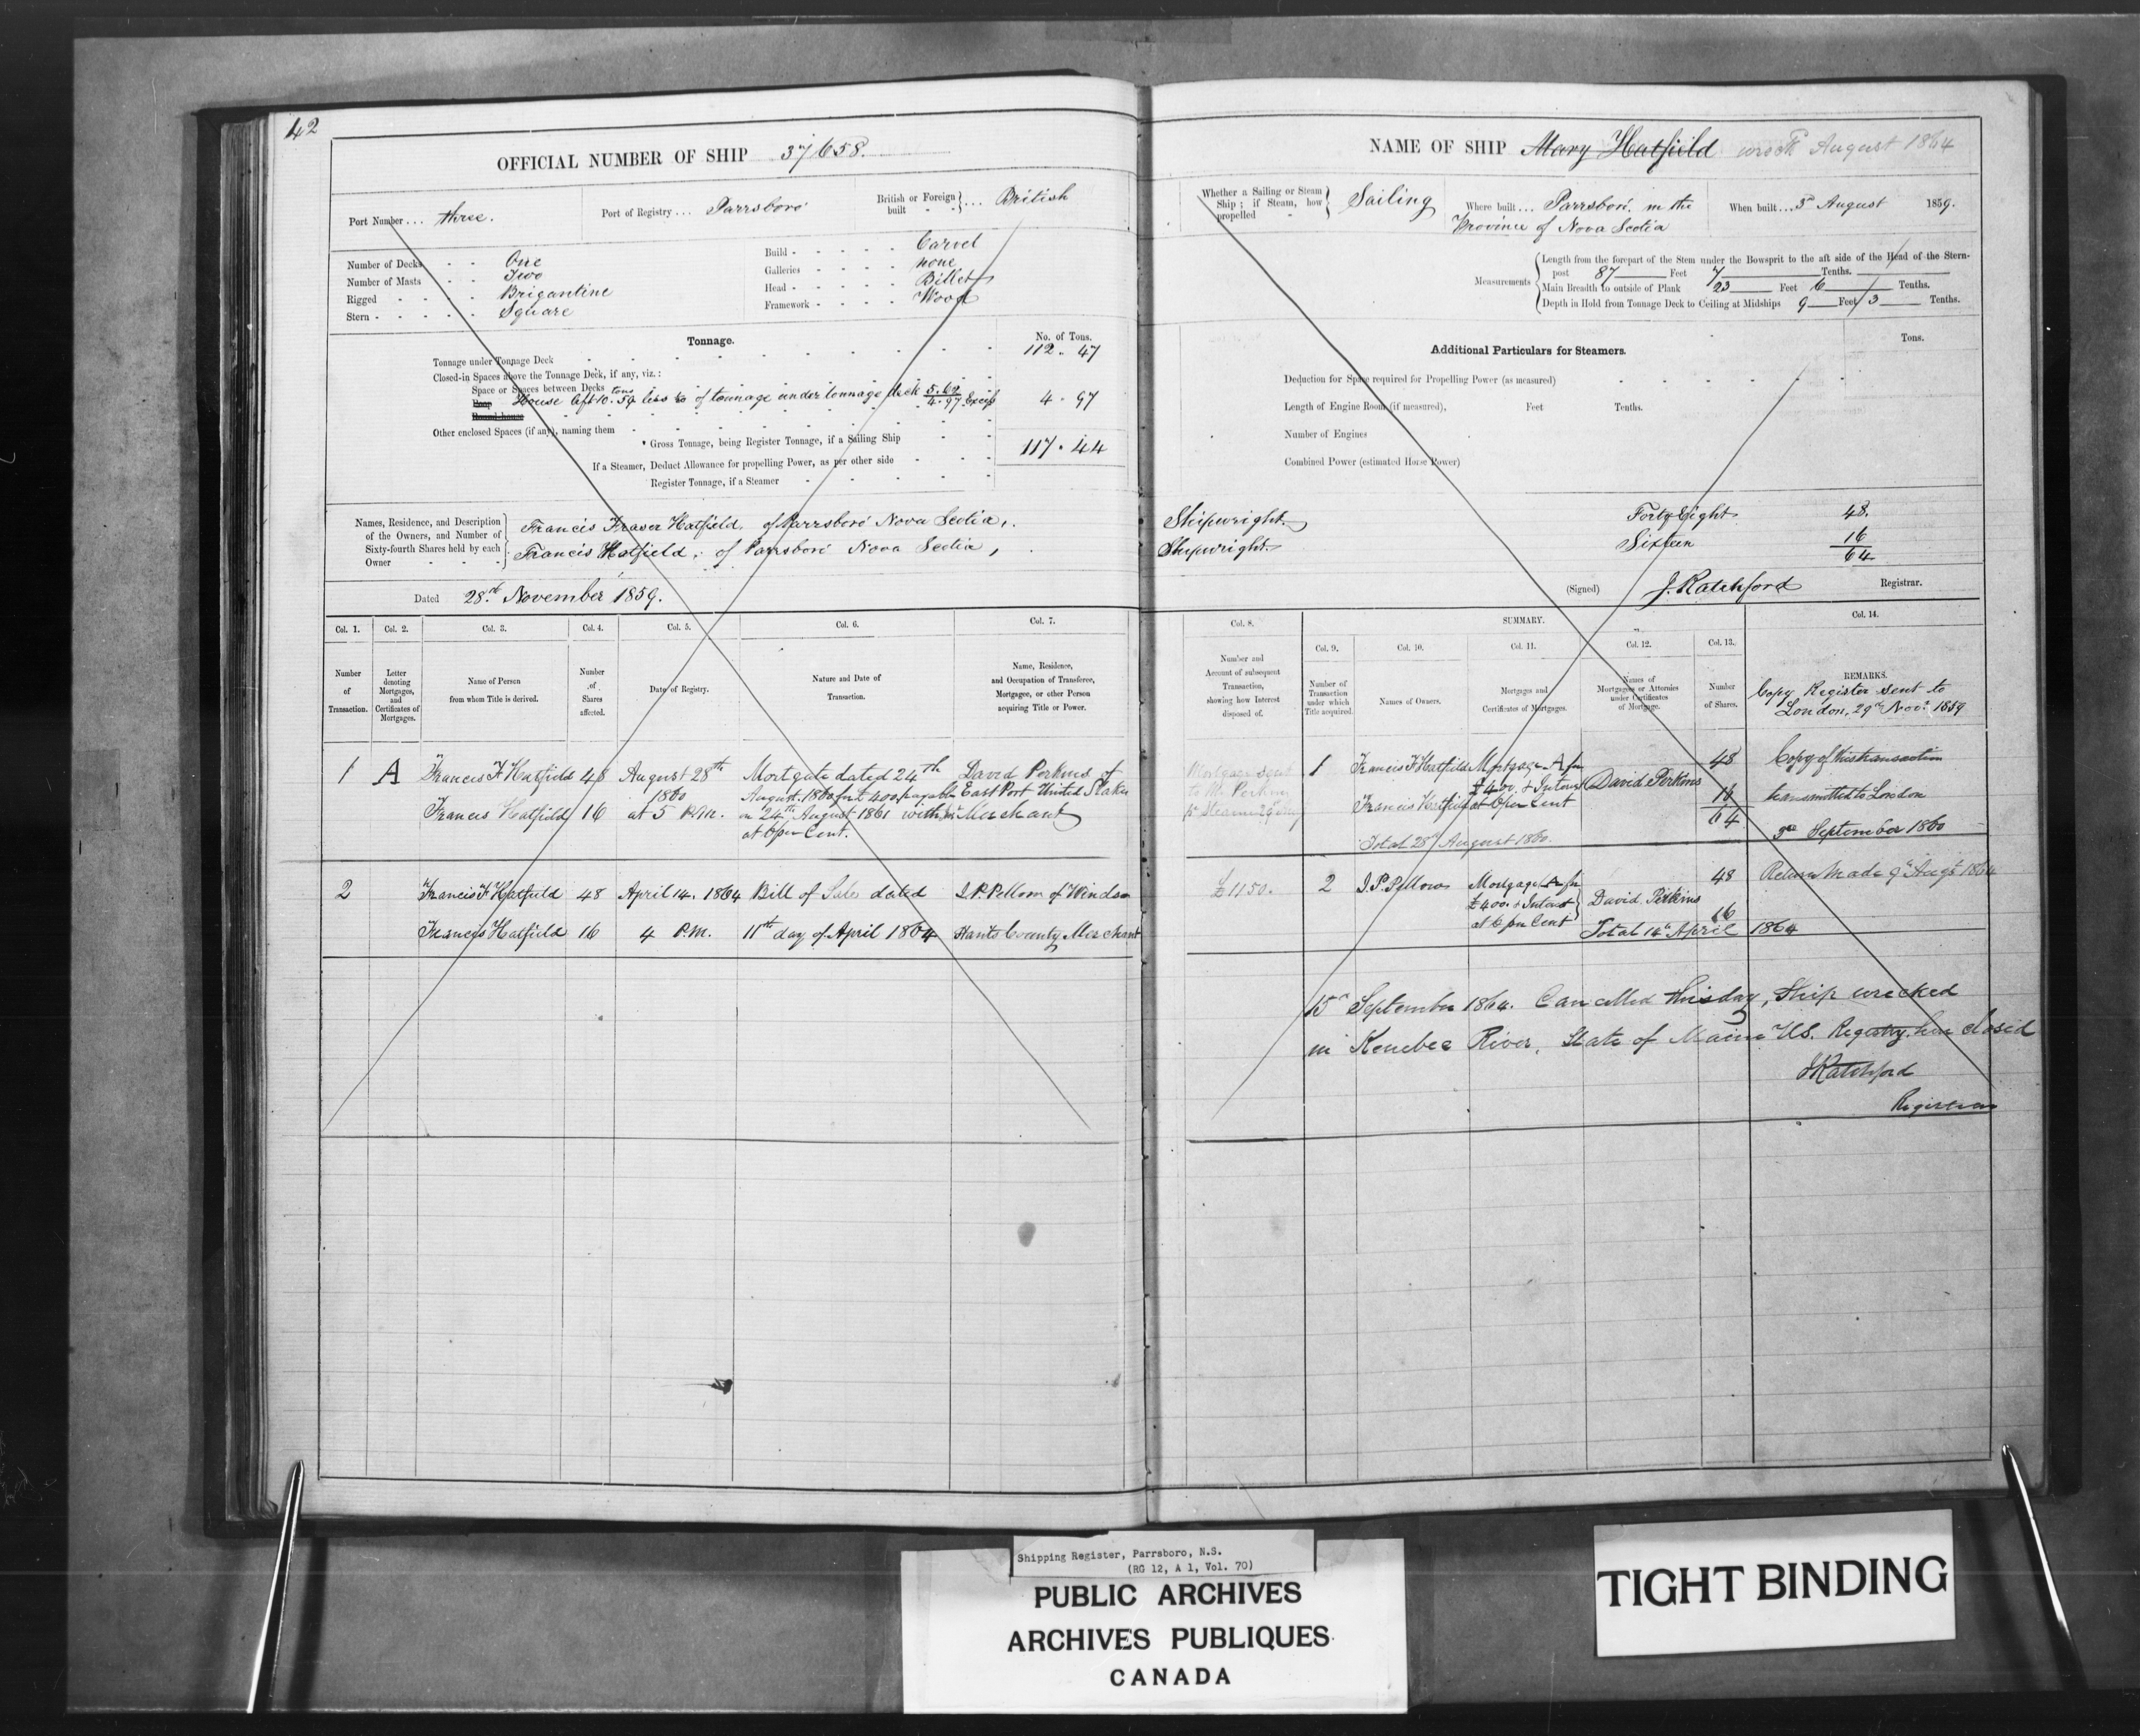 42
OFFICIAL NUMBER OF SHIP 37658.
Port Number... three.
Port of Registry... Parrsboro
British or Foreign built } ... British
Number of Decks - - One
Number of Masts - - Two
Rigged - - - - Brigantine
Stern - - - - - Square
Build - - - - - Carvel
Galleries - - - - - none
Head - - - - - Billet
Framework - - - - Wood
Tonnage.
No. of Tons.
Tonnage under Tonnage Deck 112 . 47
Closed-in Spaces above the Tonnage Deck, if any, viz.:
Space or Spaces between Decks
Poop House aft 10.59 tons less of tonnage under tonnage deck 5.62 4.97 Excess 4 . 97
Round-house
Other enclosed Spaces (if any), naming them
* Gross Tonnage, being Register Tonnage, if a Sailing Ship 117 . 44
If a Steamer, Deduct Allowance for propelling Power, as per other side
Register Tonnage, if a Steamer
Names, Residence, and Description of the Owners, and Number of Sixty-fourth Shares held by each Owner
Francis Fraser Hatfield, of Parrsboro Nova Scotia,
Francis Hatfield, of Parrsboro Nova Scotia,
Dated 28th November 1859.
Col. 1. Col. 2. Col. 3. Col. 4. Col. 5. Col. 6. Col. 7.
Number of Transaction.
Letter denoting Mortgages, and Certificates of Mortgages.
Name of Person from whom Title is derived.
Number of Shares affected.
Date of Registry.
Nature and Date of Transaction.
Name, Residence, and Occupation of Transferee, Mortgagee, or other Person acquiring Title or Power.
1 A Francis F Hatfield 48 August 28th Mortgate dated 24th David Perkins of
1860 August. 1860 for £400 payable East Port United States
Francis Hatfield 16 at 5 P.M. on 24th August 1861 with Int Merchant
at 6 per Cent.
2 Francis F Hatfield 48 April 14. 1864 Bill of Sale dated I. P. Pellow of Windsor
Francis Hatfield 16 4 P.M. 11th day of April 1864 Hants County Merchant
NAME OF SHIP Mary Hatfield wreck August 1864
Whether a Sailing or Steam Ship; if Steam, how propelled } Sailing
Where built... Parrsboro. in the
Province of Nova Scotia
When built... 3d August 1859.
Measurements
Length from the forepart of the Stem under the Bowsprit to the aft side of the Head of the Stern-
post 87 Feet 7 Tenths.
Main Breadth to outside of Plank 23 Feet 6 Tenths.
Depth in Hold from Tonnage Deck to Ceiling at Midships 9 Feet 3 Tenths.
Additional Particulars for Steamers.
Tons.
Deduction for Space required for Propelling Power (as measured)
Length of Engine Room (if measured), Feet Tenths.
Number of Engines
Combined Power (estimated Horse Power)
Shipwright. Forty Eight 48.
Shipwright. Sixteen 16
64
(Signed) J. Ratchford Registrar.
Col. 8. SUMMARY. Col. 14.
Col. 9. Col. 10. Col. 11. Col. 12. Col. 13.
Number and Account of subsequent Transaction, showing how Interest disposed of.
Number of Transaction under which Title acquired.
Names of Owners.
Mortgages and Certificates of Mortgages.
Names of Mortgagees or Attornies under Certificates of Mortgage.
Number of Shares.
REMARKS.
Copy Register sent to
London, 29th Novr. 1859
Mortgage sent 1 Francis F Hatfield Mortgage A for 48 Copy of this transaction
to Mr Perkins £400. & Interest David Perkins
Francis Hatfield at 6 per Cent 16 transmitted to London
64
Total 28th August 1860. 3rd September 1860
£1150. 2 I. P. Pellow Mortgage A for 48 Return Made 9th Augt 1864
£400. & Interest David Perkins
at 6 per Cent 16
Total 14th April 1864
15th September 1864. Cancelled this day, Ship wrecked
in Kenebec River, State of Maine US. Registry here closed
J Ratchford
Registrar
Shipping Register, Parrsboro, N.S.
(RG 12, A 1, Vol. 70)
PUBLIC ARCHIVES
ARCHIVES PUBLIQUES
CANADA
TIGHT BINDING